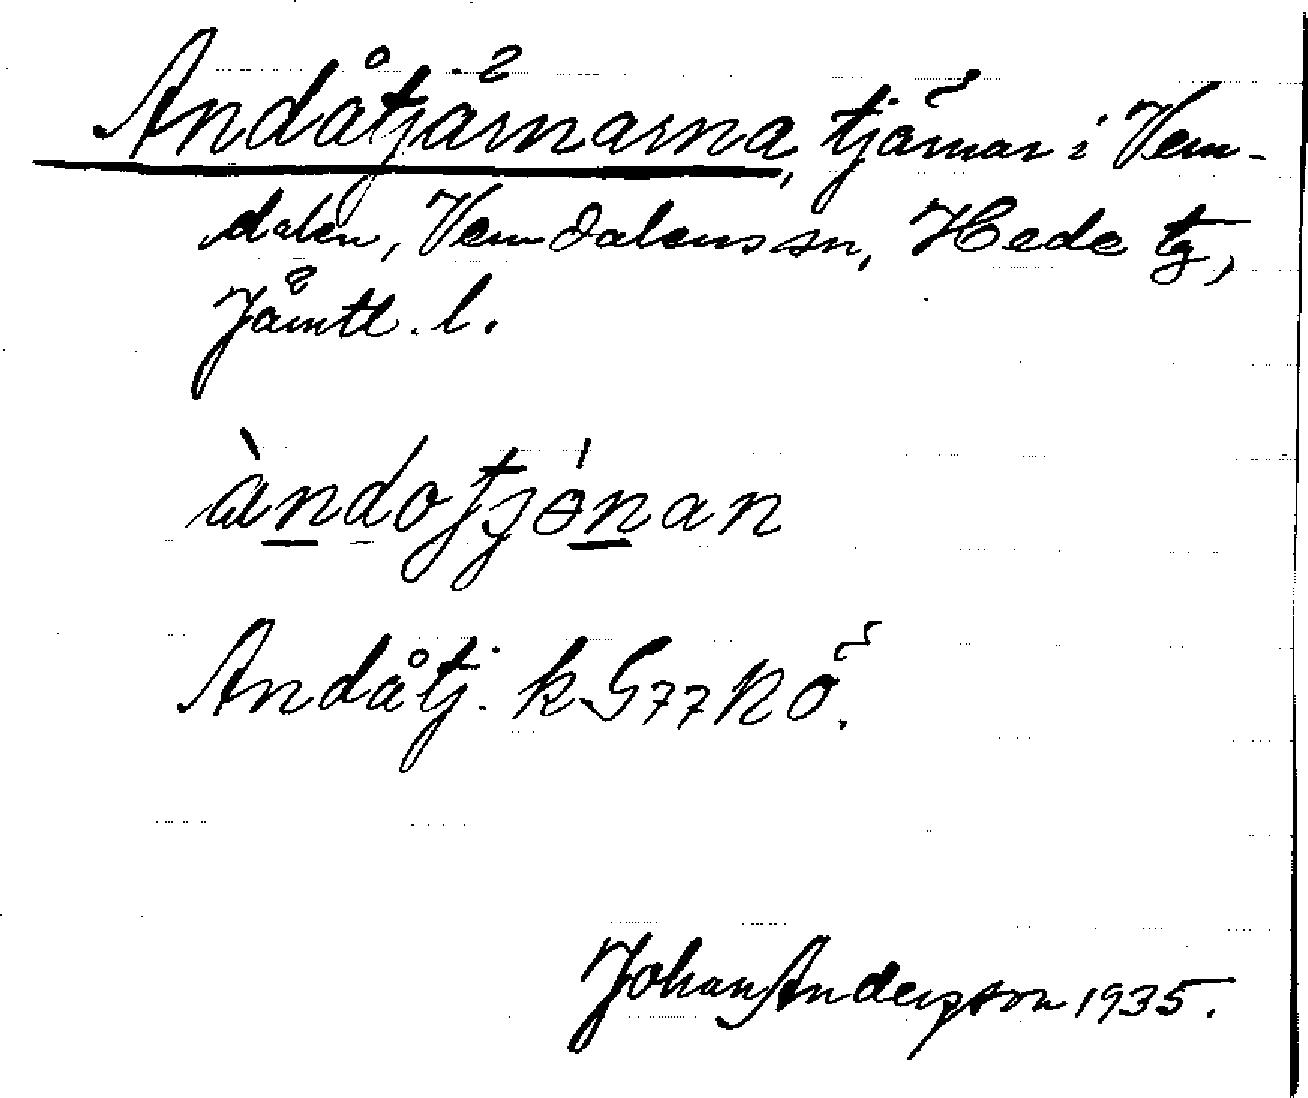 Andåtjärnarna, tjärnar i Vem-
dalen, Vemdalens sn, Hede tg,
Jämtl. l.
àndotjɵ́nan
Andåtj. k G77 NÖ.
Johan Anderson 1935.